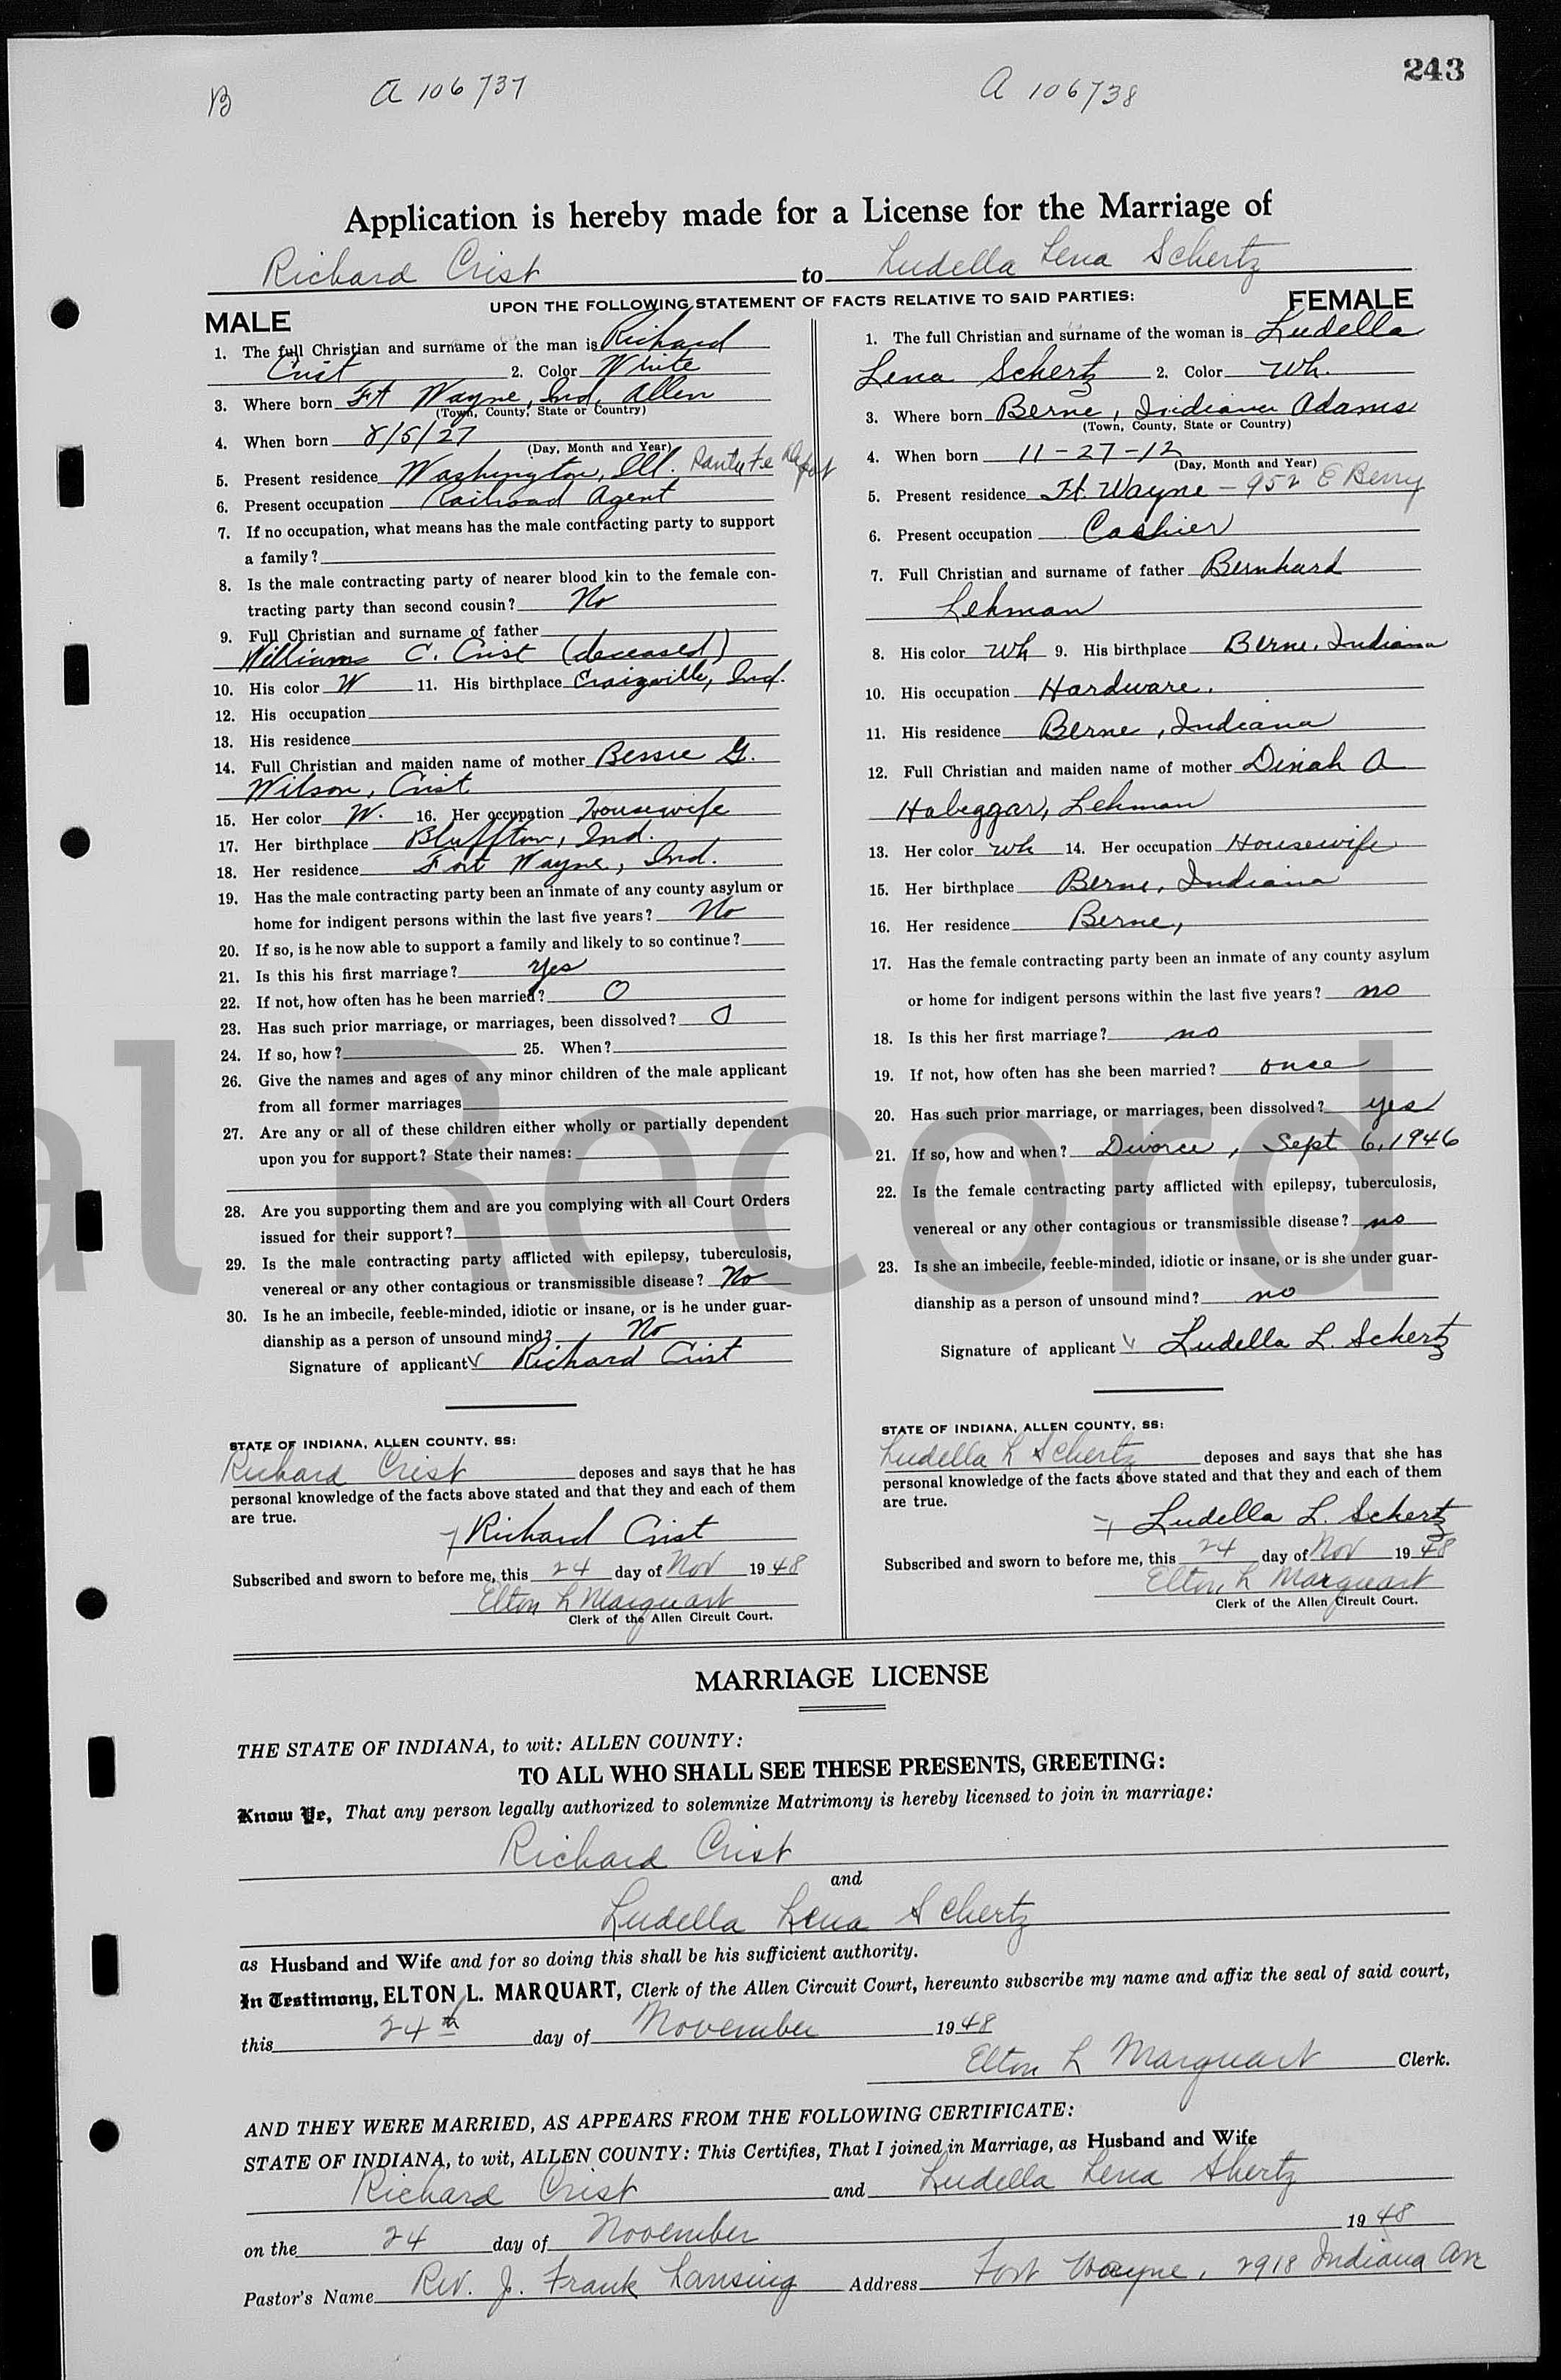 243
B A 106737 A 106738
Application is hereby made for a License for the Marriage of
Richard Crist to Ludella Lena Schertz
UPON THE FOLLOWING STATEMENT OF FACTS RELATIVE TO SAID PARTIES:
MALE
1. The full Christian and surname of the man is Richard
Crist 2. Color White
3. Where born Ft Wayne, Ind, Allen
(Town, County, State or Country)
4. When born 8/5/27
(Day, Month and Year)
5. Present residence Washington, Ill. Depot
6. Present occupation Railroad Agent
7. If no occupation, what means has the male contracting party to support
a family?
8. Is the male contracting party of nearer blood kin to the female con-
tracting party than second cousin? No
9. Full Christian and surname of father
William C. Crist (deceased)
10. His color W 11. His birthplace Craigville, Ind.
12. His occupation
13. His residence
14. Full Christian and maiden name of mother Bessie G.
Wilson, Crist
15. Her color W. 16. Her occupation Housewife
17. Her birthplace Bluffton, Ind.
18. Her residence Fort Wayne, Ind.
19. Has the male contracting party been an inmate of any county asylum or
home for indigent persons within the last five years? No
20. If so, is he now able to support a family and likely to so continue?
21. Is this his first marriage? Yes
22. If not, how often has he been married? 0
23. Has such prior marriage, or marriages, been dissolved? 0
24. If so, how? 25. When?
26. Give the names and ages of any minor children of the male applicant
from all former marriages
27. Are any or all of these children either wholly or partially dependent
upon you for support? State their names:
28. Are you supporting them and are you complying with all Court Orders
issued for their support?
29. Is the male contracting party afflicted with epilepsy, tuberculosis,
venereal or any other contagious or transmissible disease? No
30. Is he an imbecile, feeble-minded, idiotic or insane, or is he under guar-
dianship as a person of unsound mind? No
Signature of applicant Richard Crist
STATE OF INDIANA, ALLEN COUNTY, SS:
Richard Crist deposes and says that he has
personal knowledge of the facts above stated and that they and each of them
are true.
Richard Crist
Subscribed and sworn to before me, this 24 day of Nov 1948
Elton L Marquart
Clerk of the Allen Circuit Court.
FEMALE
1. The full Christian and surname of the woman is Ludella
Lena Schertz 2. Color Wh.
3. Where born Berne, Indiana Adams
(Town, County, State or Country)
4. When born 11-27-12
(Day, Month and Year)
5. Present residence Ft. Wayne - 952 E Berry
6. Present occupation Cashier
7. Full Christian and surname of father Bernhard
Lehman
8. His color Wh 9. His birthplace Berne, Indiana
10. His occupation Hardware.
11. His residence Berne, Indiana
12. Full Christian and maiden name of mother Dinah A
Habeggar, Lehman
13. Her color Wh 14. Her occupation Housewife
15. Her birthplace Berne, Indiana
16. Her residence Berne,
17. Has the female contracting party been an inmate of any county asylum
or home for indigent persons within the last five years? no
18. Is this her first marriage? no
19. If not, how often has she been married? once
20. Has such prior marriage, or marriages, been dissolved? yes
21. If so, how and when? Divorce, Sept 6, 1946
22. Is the female contracting party afflicted with epilepsy, tuberculosis,
venereal or any other contagious or transmissible disease? no
23. Is she an imbecile, feeble-minded, idiotic or insane, or is she under guar-
dianship as a person of unsound mind? no
Signature of applicant Ludella L. Schertz
STATE OF INDIANA, ALLEN COUNTY, SS:
Ludella L Schertz deposes and says that she has
personal knowledge of the facts above stated and that they and each of them
are true.
Ludella L. Schertz
Subscribed and sworn to before me, this 24 day of Nov 1948
Elton L Marquart
Clerk of the Allen Circuit Court.
al Record
MARRIAGE LICENSE
THE STATE OF INDIANA, to wit: ALLEN COUNTY:
TO ALL WHO SHALL SEE THESE PRESENTS, GREETING:
Know Ye, That any person legally authorized to solemnize Matrimony is hereby licensed to join in marriage:
Richard Crist
and
Ludella Lena Schertz
as Husband and Wife and for so doing this shall be his sufficient authority.
In Testimony, ELTON L. MARQUART, Clerk of the Allen Circuit Court, hereunto subscribe my name and affix the seal of said court,
this 24th day of November 1948
Elton L Marquart Clerk.
AND THEY WERE MARRIED, AS APPEARS FROM THE FOLLOWING CERTIFICATE:
STATE OF INDIANA, to wit, ALLEN COUNTY: This Certifies, That I joined in Marriage, as Husband and Wife
Richard Crist and Ludella Lena Shertz
on the 24 day of November 1948
Pastor's Name Rev. J. Frank Lansing Address Fort Wayne, 2918 Indiana Ave